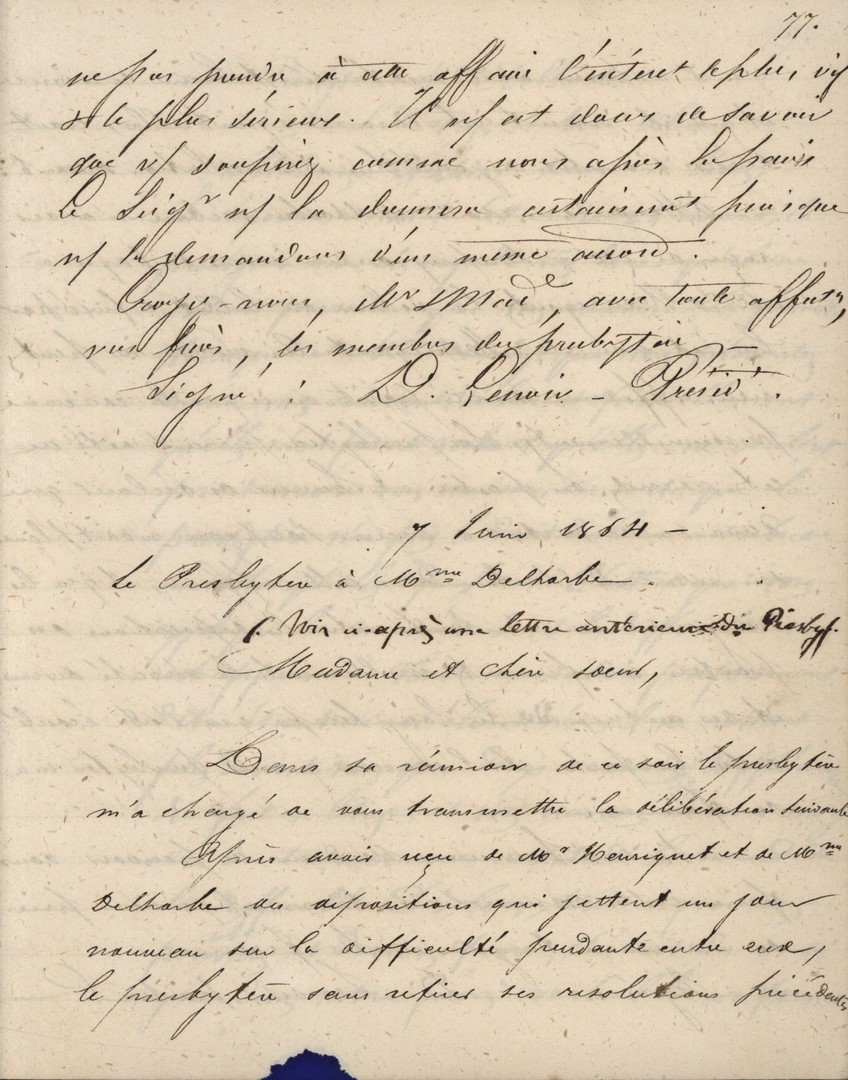 77.
ne pas prendre à cette affaire l'intéret le plus vif
& le plus sérieux. Il ns est doux de savoir
que vs soupirez comme nous après la paix
Le Seigr ns la donnera certainement puisque
ns la demandons d'un même accord.
Croyez-nous, Mr & Made, avec toute affectn,
vos frères, les membres du presbytère
Signé: D. Lenoir - Présidt.
7 Juin 1864 -
Le Presbytère à Mme Delharbe.
(. Voir ci-après une lettre antérieure du Presbyt.
Madame et chère soeur,
Dans sa réunion de ce soir le presbytère
m'a chargé de vous transmettre la délibération suivante
Après avoir reçu de Mr Henriquet et de Mme
Delharbe des dispositions qui jettent un jour
nouveau sur la difficulté pendante entre eux,
le presbytère sans retirer ses résolutions précédentes